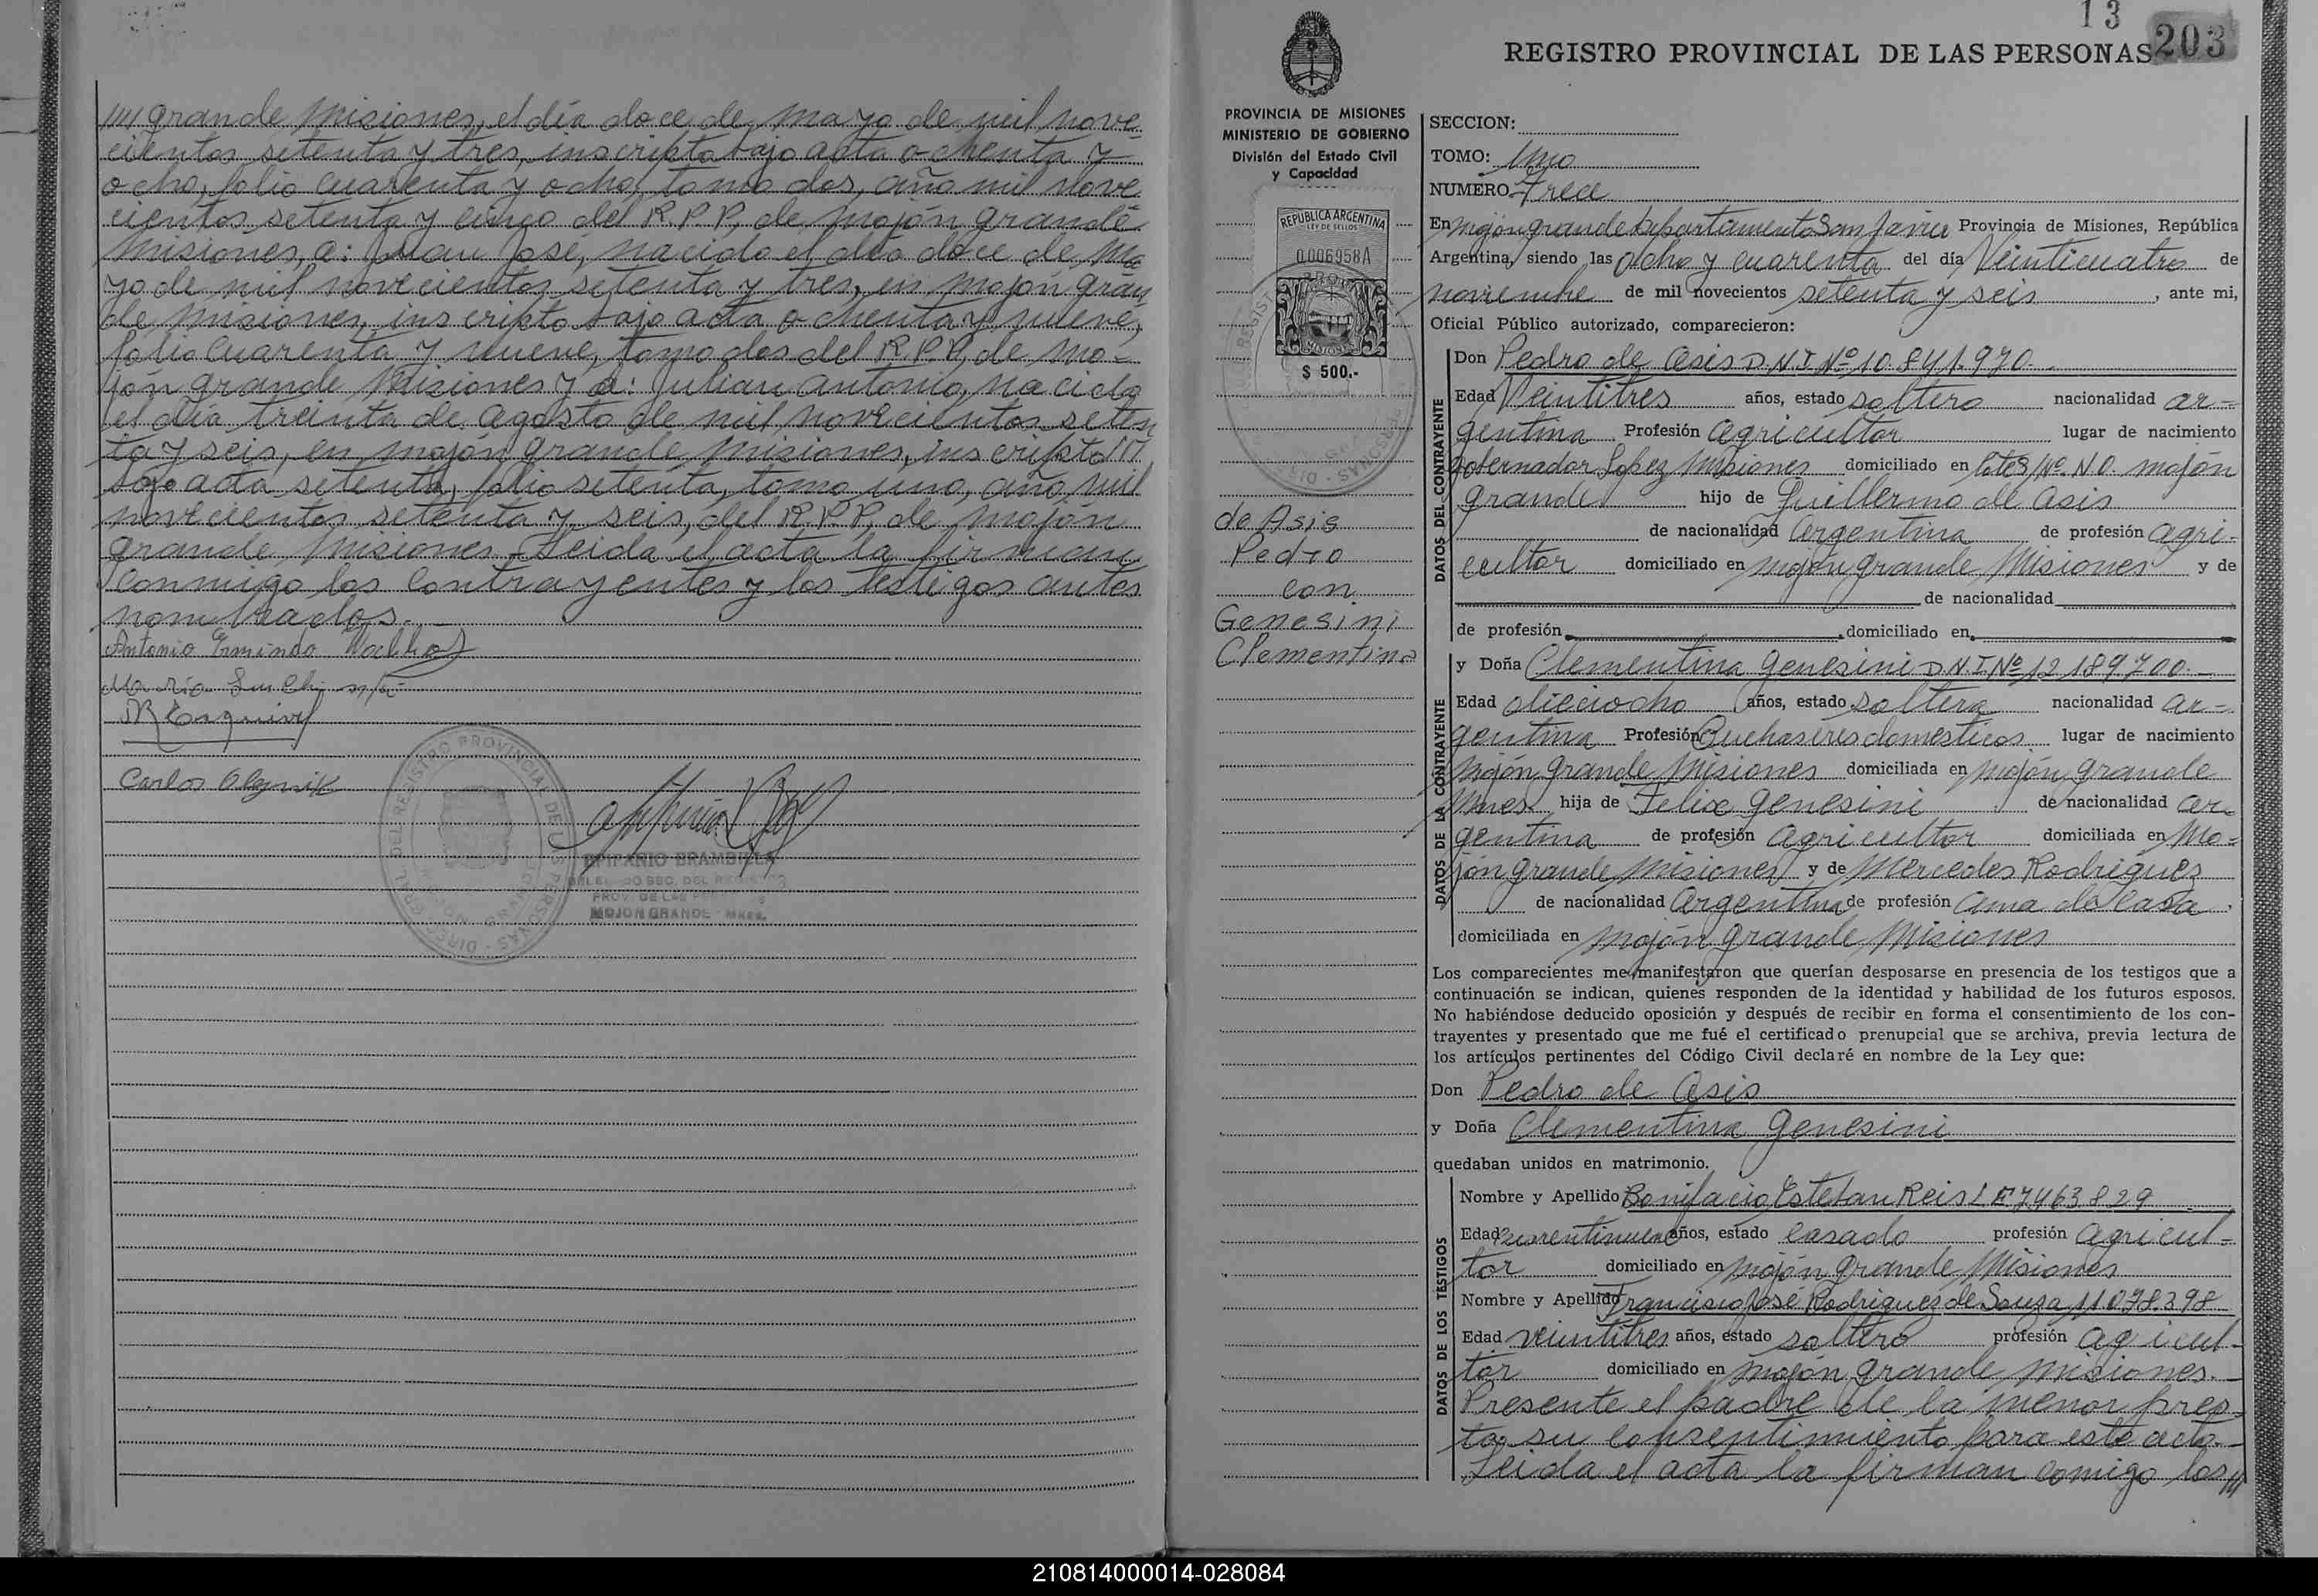 //// grande Misiones, el día doce de mayo de mil nove-
cientos setenta y tres, inscripta bajo acta ochenta y
ocho, folio cuarenta y ocho, tomo dos, año mil nove
cientos setenta y cinco del R.P.P, de mojón grande
Misiones, a: Juan José, nacido el día doce de ma
yo de mil novecientos setenta y tres, en mojón gran
de Misiones, inscripto bajo acta ochenta y nueve,
folio cuarenta y nueve, tomo dos del R.P.P, de mo-
jón grande Misiones y a: Julian Antonio, nacido
el día treinta de Agosto de mil novecientos seten
ta y seis, en mojón grande Misiones, inscripto
bajo acta setenta, folio setenta, tomo uno, año mil
novecientos setenta y seis, del R.P.P, de mojón
grande Misiones - Leida el acta la firman
conmigo los contrayentes y los testigos antes
nombrados.-
Antonio Ermindo
Maria
Esquivel
Carlos Olejnik
EPIFANIO BRAMBILLA
MOJON GRANDE - Mnes.
13
203
REGISTRO PROVINCIAL DE LAS PERSONAS
PROVINCIA DE MISIONES
MINISTERIO DE GOBIERNO
División del Estado Civil
y Capacidad
REPUBLICA ARGENTINA
LEY DE SELLOS
0006958A
MISIONES
$ 500.-
de Asis
Pedro
con
Genesini
Clementina
SECCION:
TOMO: Uno
NUMERO Trece
En mojón grande Departamento San Javier Provincia de Misiones, República
Argentina, siendo las Ocho y cuarenta del día Veinticuatro de
noviembre de mil novecientos setenta y seis, ante mi,
Oficial Público autorizado, comparecieron:
DATOS DEL CONTRAYENTE
Don Pedro de Asis D.N.I Nº 10.841.970.
Edad Veintitres años, estado soltero nacionalidad ar-
gentina Profesión Agricultor lugar de nacimiento
Gobernador Lopez Misiones domiciliado en Lote S/Nº N O. mojón
grande hijo de Guillermo de Asis
de nacionalidad Argentina de profesión agri-
cultor domiciliado en mojón grande Misiones y de
de nacionalidad
de profesión domiciliado en
DATOS DE LA CONTRAYENTE
y Doña Clementina Genesini D.N.I Nº 12.189.700.-
Edad dieciocho años, estado soltera nacionalidad ar-
gentina Profesión Quehaseres domesticos. lugar de nacimiento
Mojón grande Misiones domiciliada en mojón grande
Mnes hija de Felix Genesini de nacionalidad ar-
gentina de profesión Agricultor domiciliada en Mo-
jón grande Misiones y de Mercedes Rodriguez
de nacionalidad Argentina de profesión Ama de Casa.
domiciliada en mojón grande Misiones
Los comparecientes me manifestaron que querían desposarse en presencia de los testigos que a
continuación se indican, quienes responden de la identidad y habilidad de los futuros esposos.
No habiéndose deducido oposición y después de recibir en forma el consentimiento de los con-
trayentes y presentado que me fué el certificado prenupcial que se archiva, previa lectura de
los artículos pertinentes del Código Civil declaré en nombre de la Ley que:
Don Pedro de Asis
y Doña Clementina Genesini
quedaban unidos en matrimonio.
DATOS DE LOS TESTIGOS
Nombre y Apellido Bonifacio Esteban Reis L E 7463829
Edad cuarentinueve años, estado casado profesión agricul-
tor domiciliado en mojón grande Misiones
Nombre y Apellido Francisco José Rodriguez de Souza 11078.398
Edad veintitres años, estado soltero profesión agricul-
tor domiciliado en mojón grande Misiones.-
Presente el padre de la menor pres-
ta su consentimiento para este acto.-
Leida el acta la firman comigo los ////
210814000014-028084